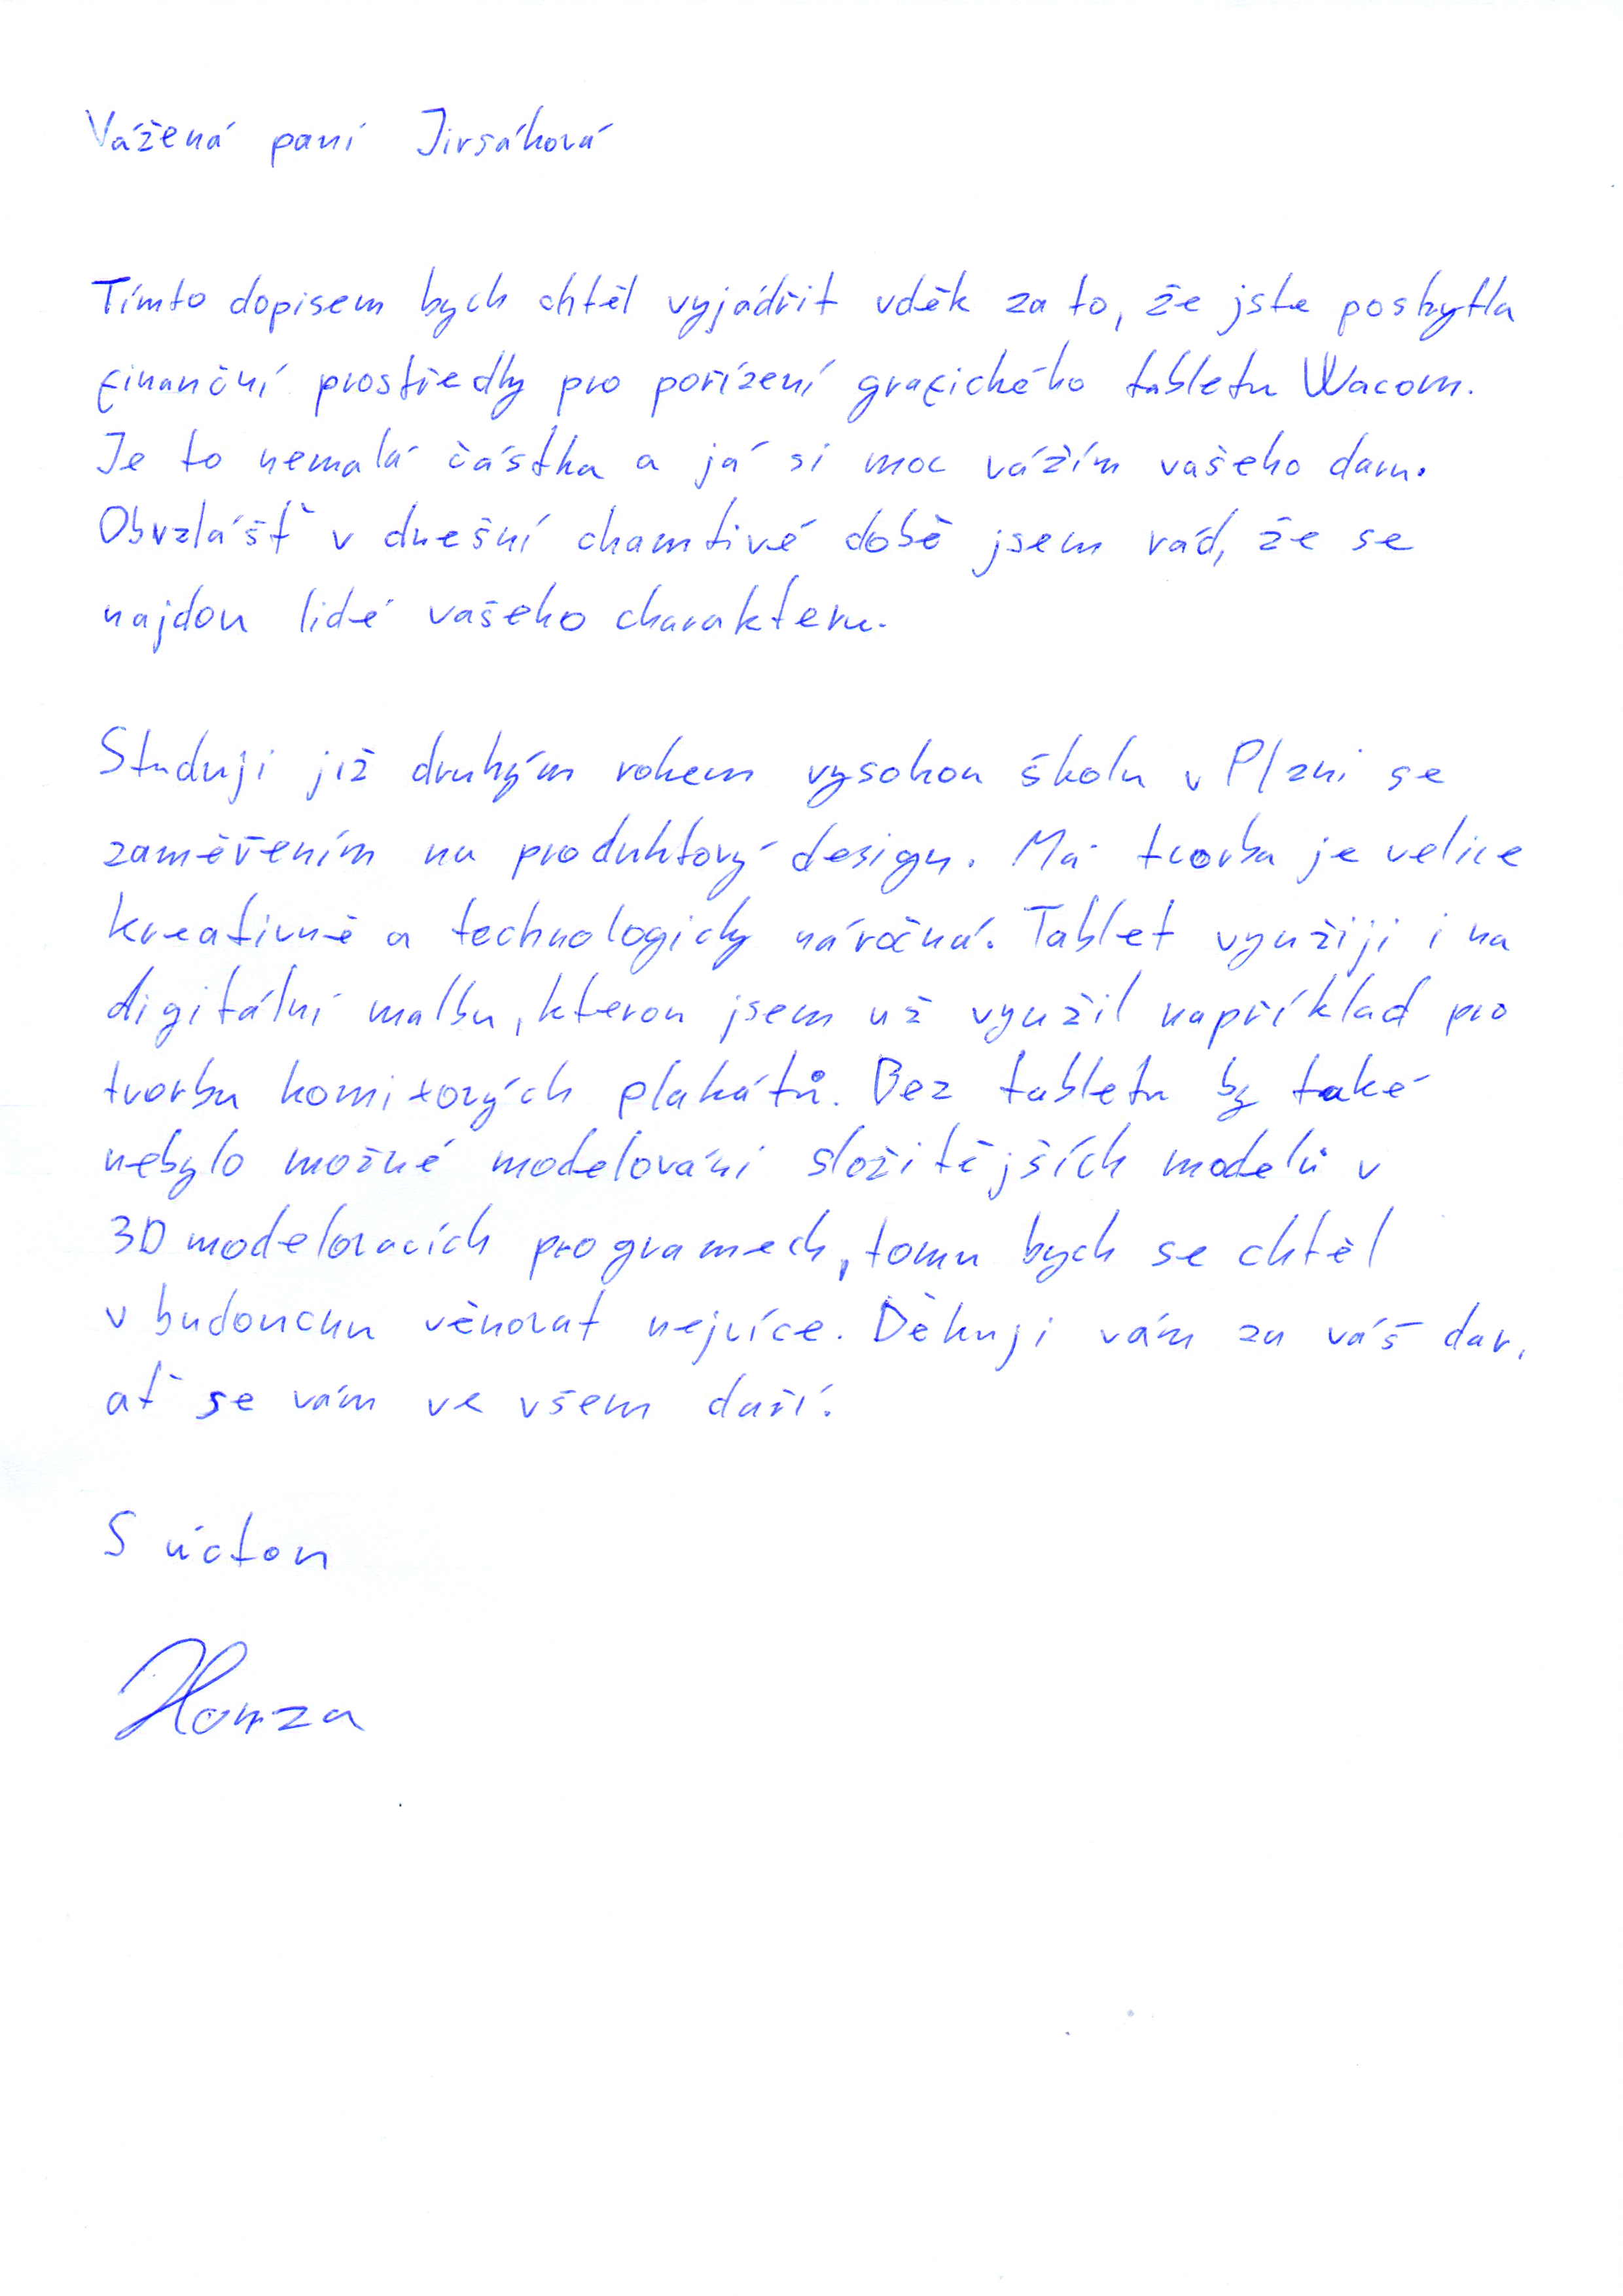 Vážená paní Jirsáková
Tímto dopisem bych chtěl vyjádřit vděk za to, že jste poskytla
finanční prostředky pro pořízení grafického tabletu Wacom.
Je to nemalá částka a já si moc vážím vašeho daru.
Obvzlášť v dnešní chamtivé době jsem rád, že se
najdou lidé vašeho charakteru.
Studuji již druhým rokem vysokou školu v Plzni se
zaměřením na produktový design. Má tvorba je velice
kreativně a technologicky náročná. Tablet využiji i na
digitální malbu, kterou jsem už využil například pro
tvorbu komixových plakátů. Bez tabletu by také
nebylo možné modelování složitějších modelů v
3D modelovacích programech, tomu bych se chtěl
v budoucnu věnovat nejvíce. Děkuji vám za váš dar,
ať se vám ve všem daří.
S úctou
Honza